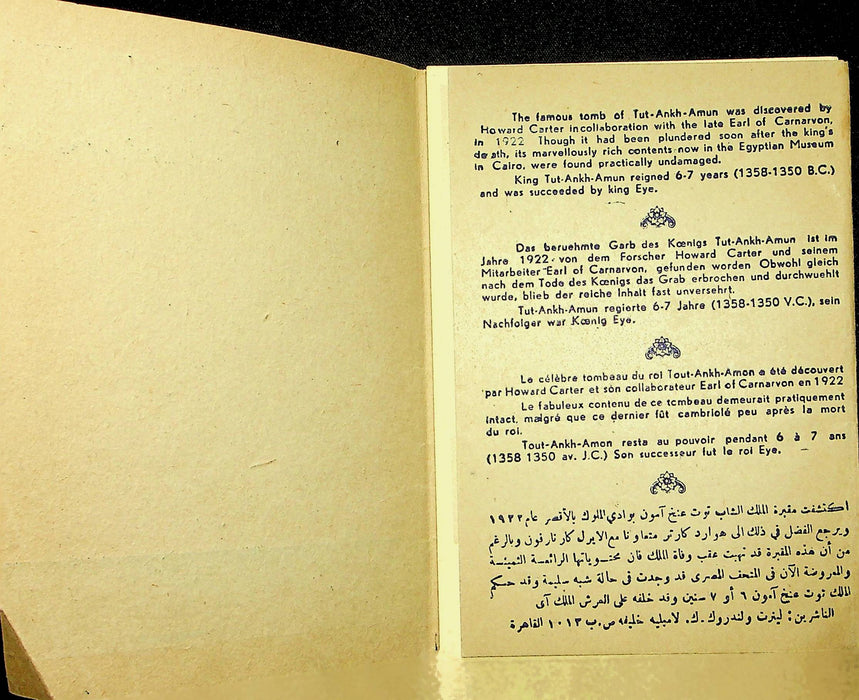 The famous tomb of Tut-Ankh-Amun was discovered by
Howard Carter incollaboration with the late Earl of Carnarvon,
in 1922 Though it had been plundered soon after the king's
death, its marvellously rich contents now in the Egyptian Museum
in Cairo, were found practically undamaged.
King Tut-Ankh-Amun reigned 6-7 years (1358-1350 B.C.)
and was succeeded by king Eye.
Das beruehmte Garb des Kœnigs Tut-Ankh-Amun ist im
Jahre 1922 von dem Forscher Howard Carter und seinem
Mitarbeiter Earl of Carnarvon, gefunden worden Obwohl gleich
nach dem Tode des Kœnigs das Grab erbrochen und durchwuehlt
wurde, blieb der reiche Inhalt fast unversehrt.
Tut-Ankh-Amun regierte 6-7 Jahre (1358-1350 V.C.), sein
Nachfolger war Kœnig Eye.
Le célèbre tombeau du roi Tout-Ankh-Amon a été découvert
par Howard Carter et son collaborateur Earl of Carnarvon en 1922
Le fabuleux contenu de ce tombeau demeurait pratiquement
intact, malgré que ce dernier fût cambriolé peu après la mort
du roi.
Tout-Ankh-Amon resta au pouvoir pendant 6 à 7 ans
(1358 1350 av. J.C.) Son successeur fut le roi Eye.
اكتشفت مقبرة الملك الشاب توت عنخ آمون بوادى الملوك بالأقصر عام ١٩٢٢
ويرجع الفضل في ذلك الى هوارد كارتر متعاونا مع الايرل كارنارفون وبالرغم
من أن هذه المقبرة قد نهبت عقب وفاة الملك فان محتوياتها الرائعة الثمينة
والمعروضة الآن فى المتحف المصرى قد وجدت فى حالة شبه سليمة وقد حكم
الملك توت عنخ آمون ٦ أو ٧ سنين وقد خلفه على العرش الملك آى
الناشرين: لينرت ولندروك. ك. لامبليه خليفه ص.ب ١٠١٣ القاهرة